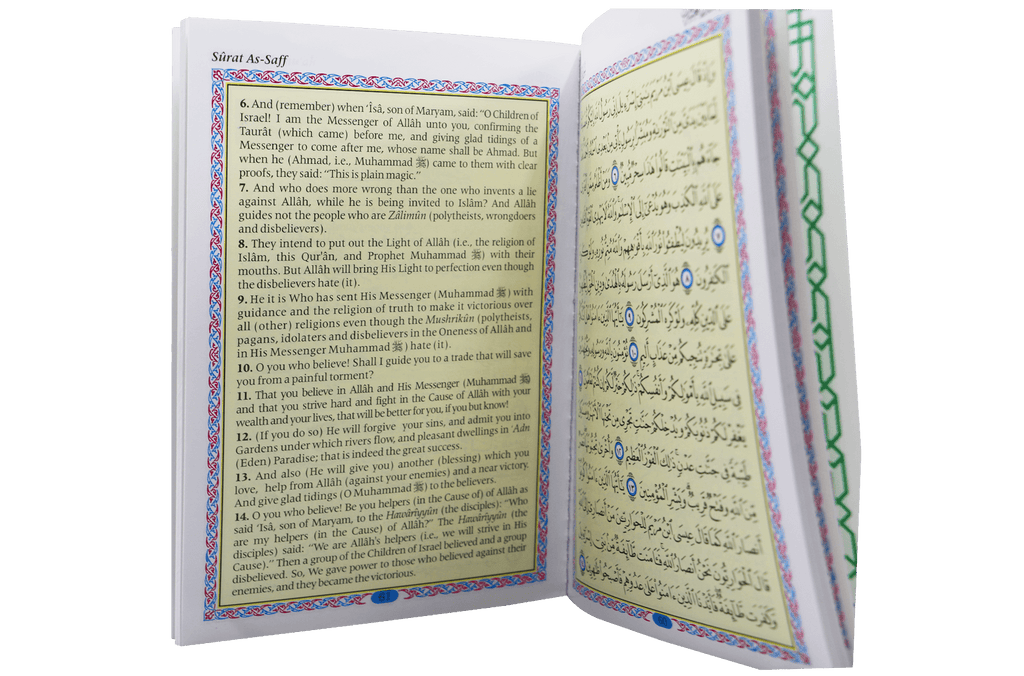 Sûrat As-Saff
6. And (remember) when ‘Îsâ, son of Maryam, said: “O Children of
Israel! I am the Messenger of Allâh unto you, confirming the
Taurât (which came) before me, and giving glad tidings of a
Messenger to come after me, whose name shall be Ahmad. But
when he (Ahmad, i.e., Muhammad ﷺ) came to them with clear
proofs, they said: “This is plain magic.”
7. And who does more wrong than the one who invents a lie
against Allâh, while he is being invited to Islâm? And Allâh
guides not the people who are Zâlimûn (polytheists, wrongdoers
and disbelievers).
8. They intend to put out the Light of Allâh (i.e., the religion of
Islâm, this Qur'ân, and Prophet Muhammad ﷺ) with their
mouths. But Allâh will bring His Light to perfection even though
the disbelievers hate (it).
9. He it is Who has sent His Messenger (Muhammad ﷺ) with
guidance and the religion of truth to make it victorious over
all (other) religions even though the Mushrikûn (polytheists,
pagans, idolaters and disbelievers in the Oneness of Allâh and
in His Messenger Muhammad ﷺ) hate (it).
10. O you who believe! Shall I guide you to a trade that will save
you from a painful torment?
11. That you believe in Allâh and His Messenger (Muhammad ﷺ)
and that you strive hard and fight in the Cause of Allâh with your
wealth and your lives, that will be better for you, if you but know!
12. (If you do so) He will forgive your sins, and admit you into
Gardens under which rivers flow, and pleasant dwellings in ‘Adn
(Eden) Paradise; that is indeed the great success.
13. And also (He will give you) another (blessing) which you
love, help from Allâh (against your enemies) and a near victory.
And give glad tidings (O Muhammad ﷺ) to the believers.
14. O you who believe! Be you helpers (in the Cause of) of Allâh as
said ‘Isâ, son of Maryam, to the Hawâriyyûn (the disciples): “Who
are my helpers (in the Cause) of Allâh?” The Hawâriyyûn (the
disciples) said: “We are Allâh's helpers (i.e., we will strive in His
Cause).” Then a group of the Children of Israel believed and a group
disbelieved. So, We gave power to those who believed against their
enemies, and they became the victorious.
61
وَإِذْ قَالَ عِيسَى ٱبْنُ مَرْيَمَ يَٰبَنِىٓ إِسْرَٰٓءِيلَ إِنِّى رَسُولُ ٱللَّهِ إِلَيْكُم
لِّمَا بَيْنَ يَدَىَّ مِنَ ٱلتَّوْرَىٰةِ وَمُبَشِّرًۢا بِرَسُولٍ يَأْتِى مِنۢ بَعْدِى ٱسْمُهُۥٓ
جَآءَهُم بِٱلْبَيِّنَٰتِ قَالُوا۟ هَٰذَا سِحْرٌ مُّبِينٌ ٦ وَمَنْ أَظْلَمُ
عَلَى ٱللَّهِ ٱلْكَذِبَ وَهُوَ يُدْعَىٰٓ إِلَى ٱلْإِسْلَٰمِ وَٱللَّهُ لَا يَهْدِى ٱلْقَوْمَ
٧ يُرِيدُونَ لِيُطْفِـُٔوا۟ نُورَ ٱللَّهِ بِأَفْوَٰهِهِمْ وَٱللَّهُ مُتِمُّ نُورِهِۦ وَلَوْ كَرِهَ
ٱلْكَٰفِرُونَ ٨ هُوَ ٱلَّذِىٓ أَرْسَلَ رَسُولَهُۥ بِٱلْهُدَىٰ وَدِينِ ٱلْحَقِّ
عَلَى ٱلدِّينِ كُلِّهِۦ وَلَوْ كَرِهَ ٱلْمُشْرِكُونَ ٩ يَٰٓأَيُّهَا ٱلَّذِينَ ءَامَنُوا۟ هَلْ
عَلَىٰ تِجَٰرَةٍ تُنجِيكُم مِّنْ عَذَابٍ أَلِيمٍ ١٠ تُؤْمِنُونَ بِٱللَّهِ وَرَسُولِهِۦ
فِى سَبِيلِ ٱللَّهِ بِأَمْوَٰلِكُمْ وَأَنفُسِكُمْ ذَٰلِكُمْ خَيْرٌ لَّكُمْ إِن كُنتُمْ
يَغْفِرْ لَكُمْ ذُنُوبَكُمْ وَيُدْخِلْكُمْ جَنَّٰتٍ تَجْرِى مِن تَحْتِهَا ٱلْأَنْهَٰرُ
طَيِّبَةً فِى جَنَّٰتِ عَدْنٍ ذَٰلِكَ ٱلْفَوْزُ ٱلْعَظِيمُ ١٢ وَأُخْرَىٰ تُحِبُّونَهَا
مِّنَ ٱللَّهِ وَفَتْحٌ قَرِيبٌ وَبَشِّرِ ٱلْمُؤْمِنِينَ ١٣ يَٰٓأَيُّهَا ٱلَّذِينَ ءَامَنُوا۟
أَنصَارَ ٱللَّهِ كَمَا قَالَ عِيسَى ٱبْنُ مَرْيَمَ لِلْحَوَارِيِّـۧنَ مَنْ أَنصَارِىٓ
قَالَ ٱلْحَوَارِيُّونَ نَحْنُ أَنصَارُ ٱللَّهِ فَـَٔامَنَت طَّآئِفَةٌ مِّنۢ بَنِىٓ
وَكَفَرَت طَّآئِفَةٌ فَأَيَّدْنَا ٱلَّذِينَ ءَامَنُوا۟ عَلَىٰ عَدُوِّهِمْ فَأَصْبَحُوا۟ ظَٰهِرِينَ
60